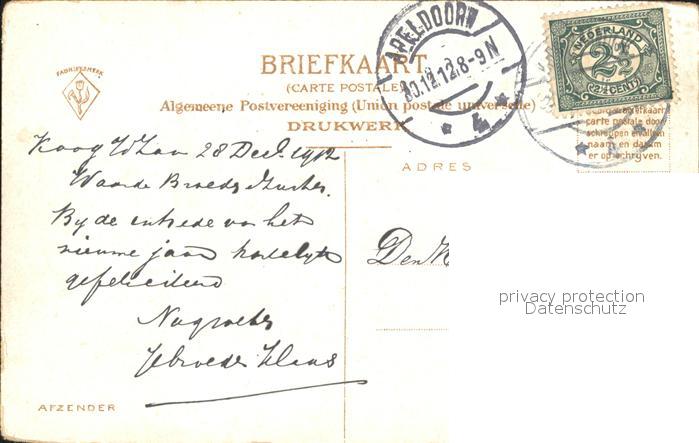 FABRIEKSMERK
BRIEFKAART
(CARTE POSTALE)
Algemeene Postvereeniging (Union postale universelle)
DRUKWERK
APELDOORN
30.12.12.8-9N
4
NEDERLAND
2½
(2½ CENT)
carte postale door
schrappen en alleen
naam en datum
er op schrijven.
ADRES
Koog a/d Zaan 28 Dec. 1912
Waarde Broeder Zuster.
By de intrede van het
nieuwe jaar hartelyk
gefeliciteerd
Uw Broeder
Klaas
Den
privacy protection
Datenschutz
AFZENDER